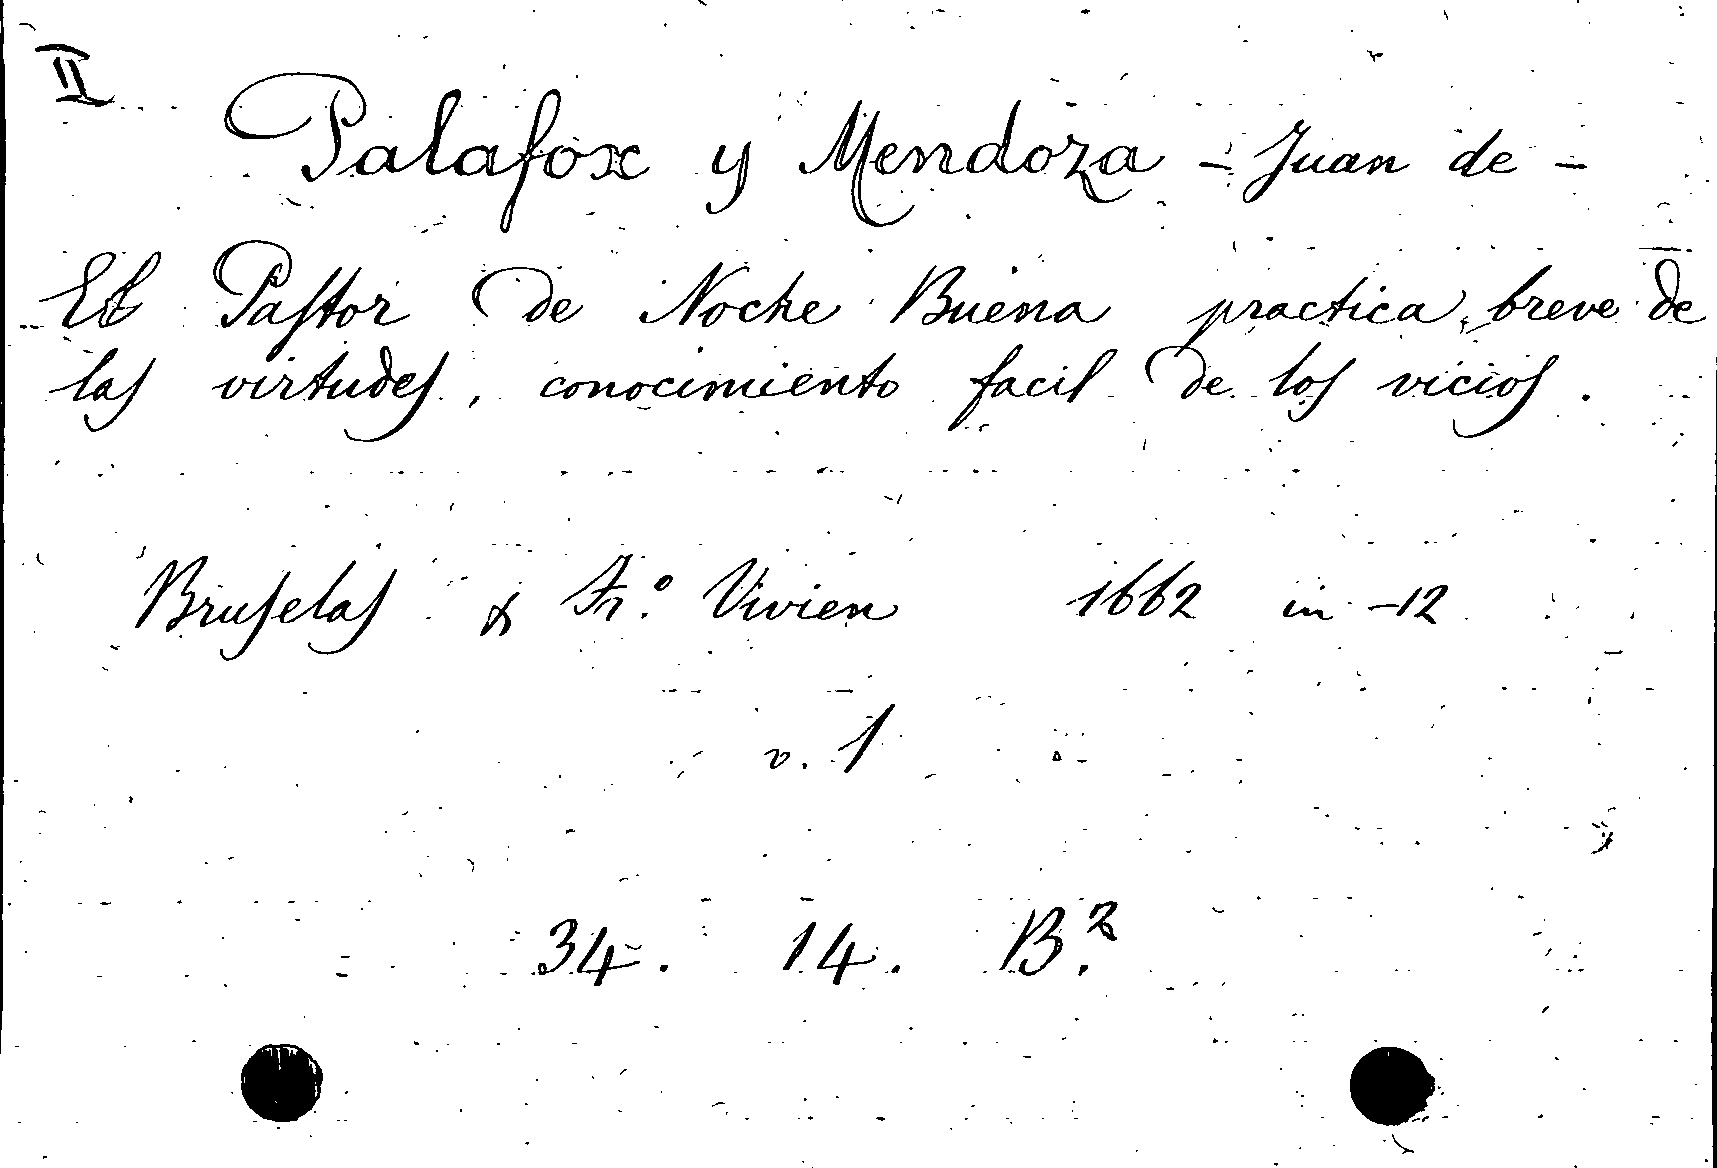 II
Palafox y Mendoza - Juan de -
El Pastor de Noche Buena practica breve de
las virtudes, conocimiento facil de los vicios.
Bruselas & Fr.º Vivien 1662 in-12
v. 1
34. 14. B.2